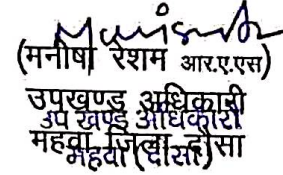 (मनीषा रेशम आर.ए.एस)
उपखण्ड अधिकारी
उप खण्ड अधिकारी
महवा जिला दौसा
महवा (दौसा)